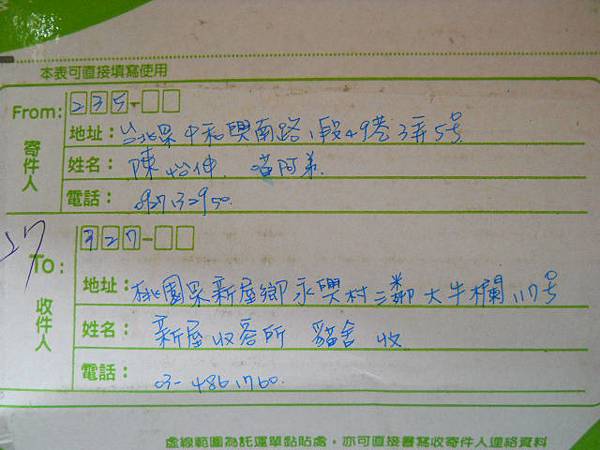 本表可直接填寫使用
From: 235-
寄件人
地址: 台北縣中和興南路1段49巷3弄5号
姓名: 陳怡伸 喵阿弟
電話:
27
To: 327-
收件人
地址: 桃園縣新屋鄉永興村三鄰大牛欄117号
姓名: 新屋收容所 貓舍 收
電話: 03-4861760.
虛線範圍為託運單黏貼處,亦可直接書寫收寄件人連絡資料